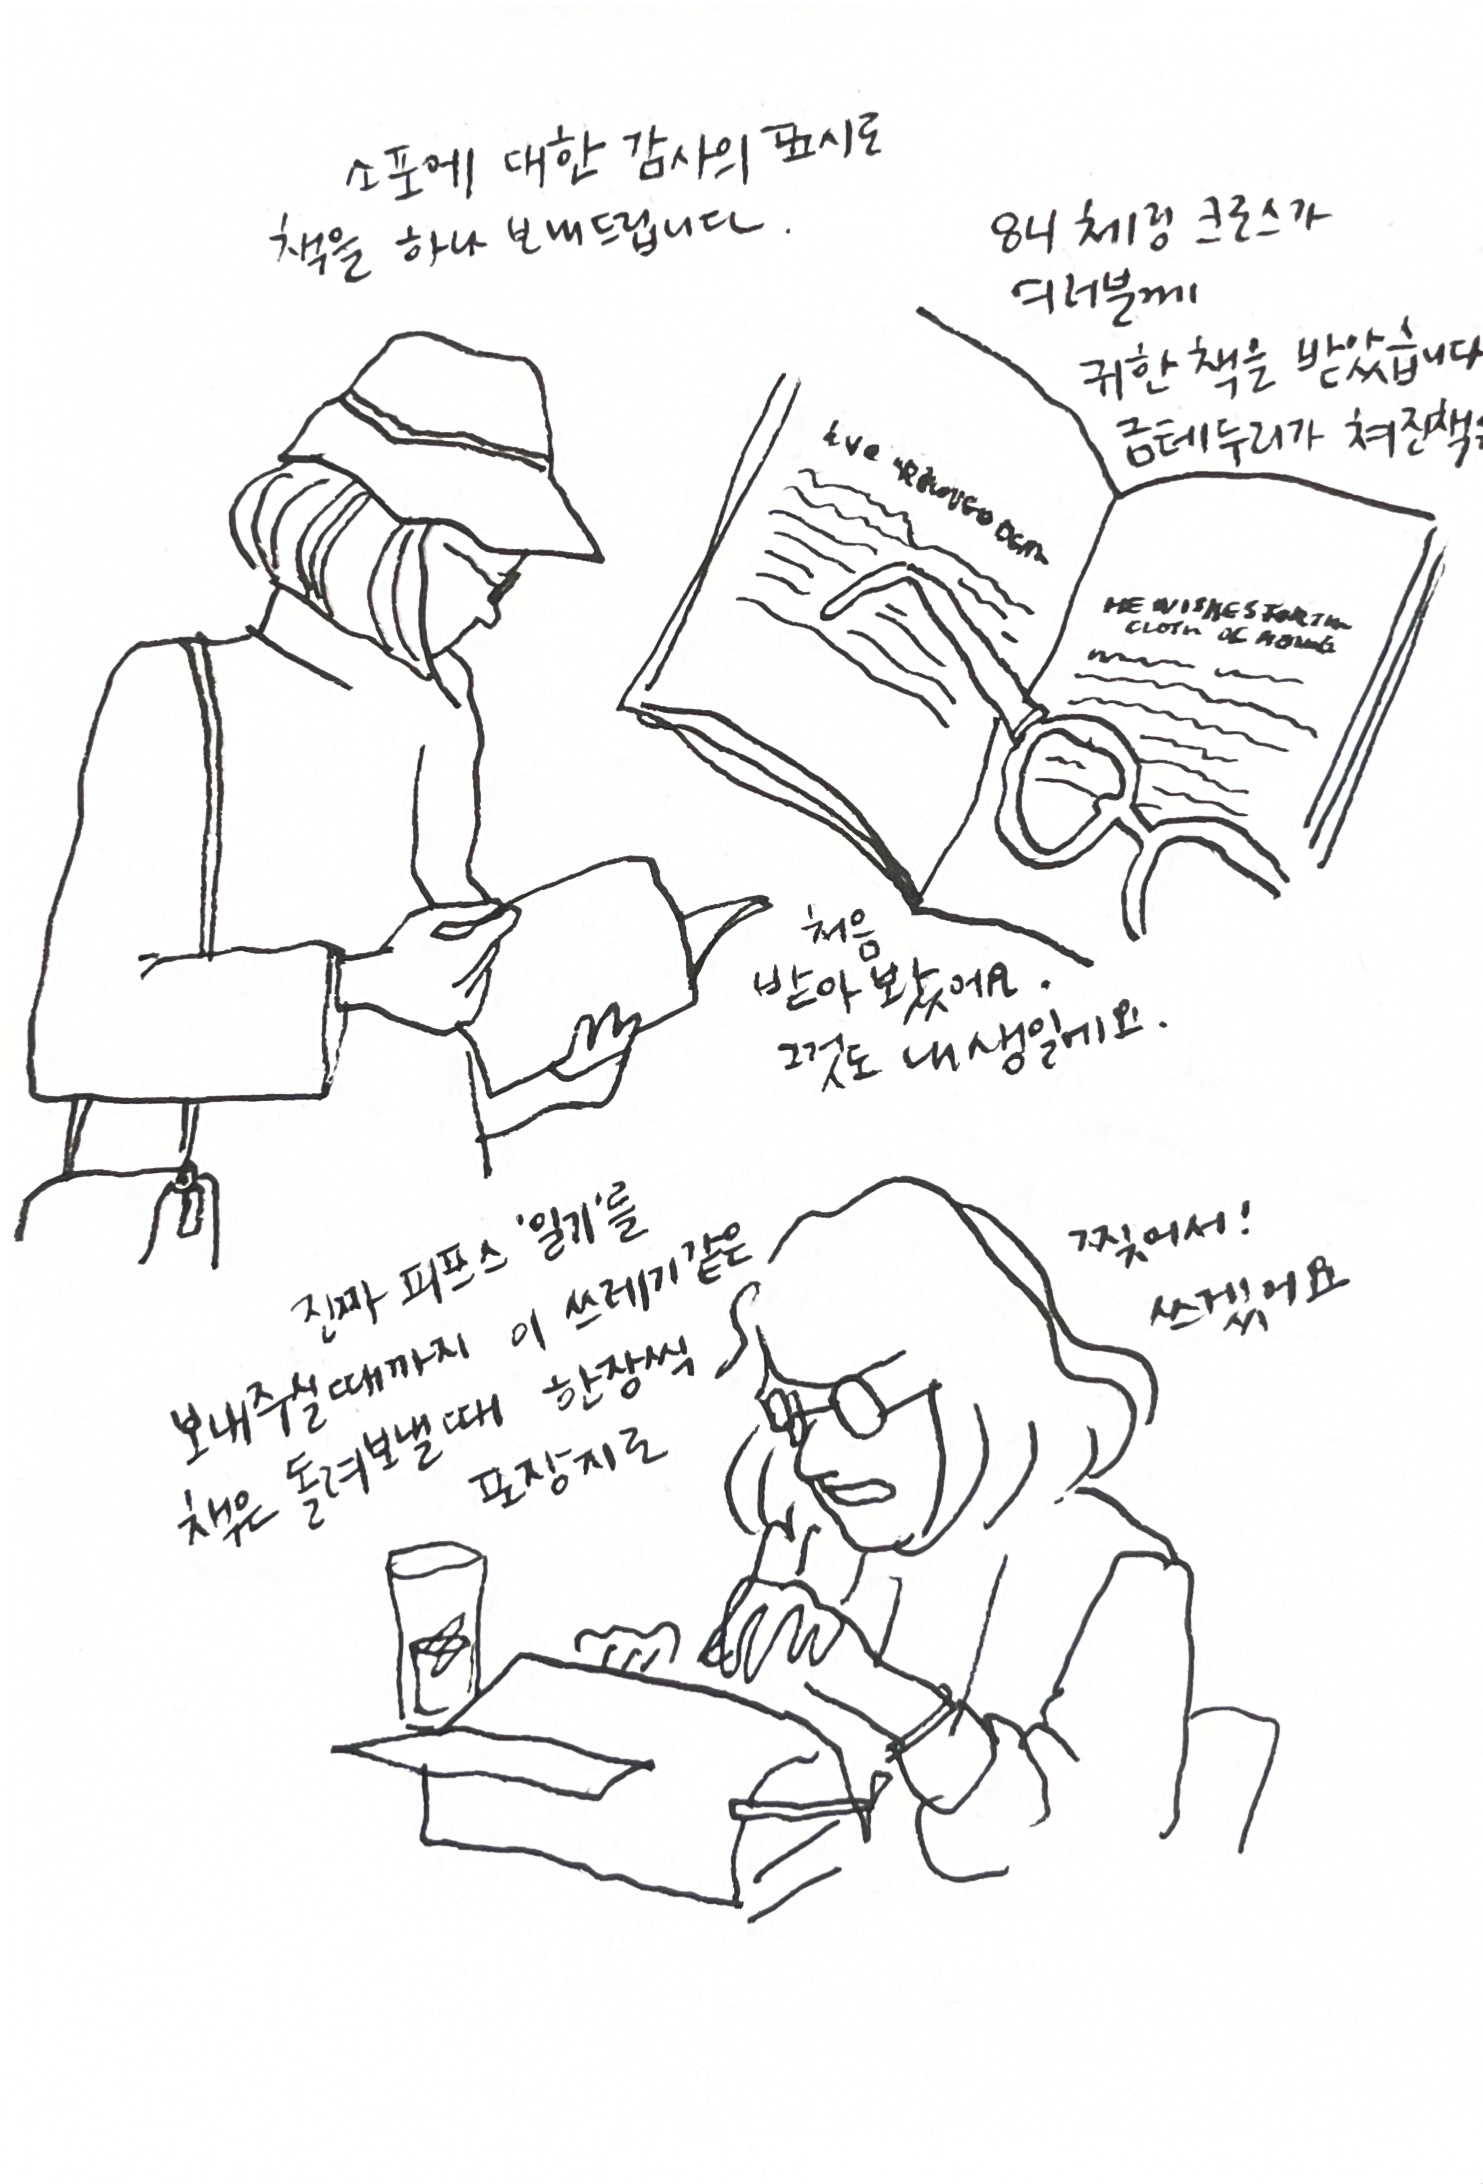 소포에 대한 감사의 표시로
책을 하나 보내드립니다.
84 체링 크로스가
여러분께
귀한 책을 받았습니다
금테두리가 쳐진책을
HE WISHES FOR THE
CLOTH OF
처음
받아 봤어요.
그것도 내 생일에요.
진짜 피프스 '일기'를
보내주실때까지 이 쓰레기같은
책은 돌려보낼때 한장씩
포장지로
찢어서!
쓰겠어요